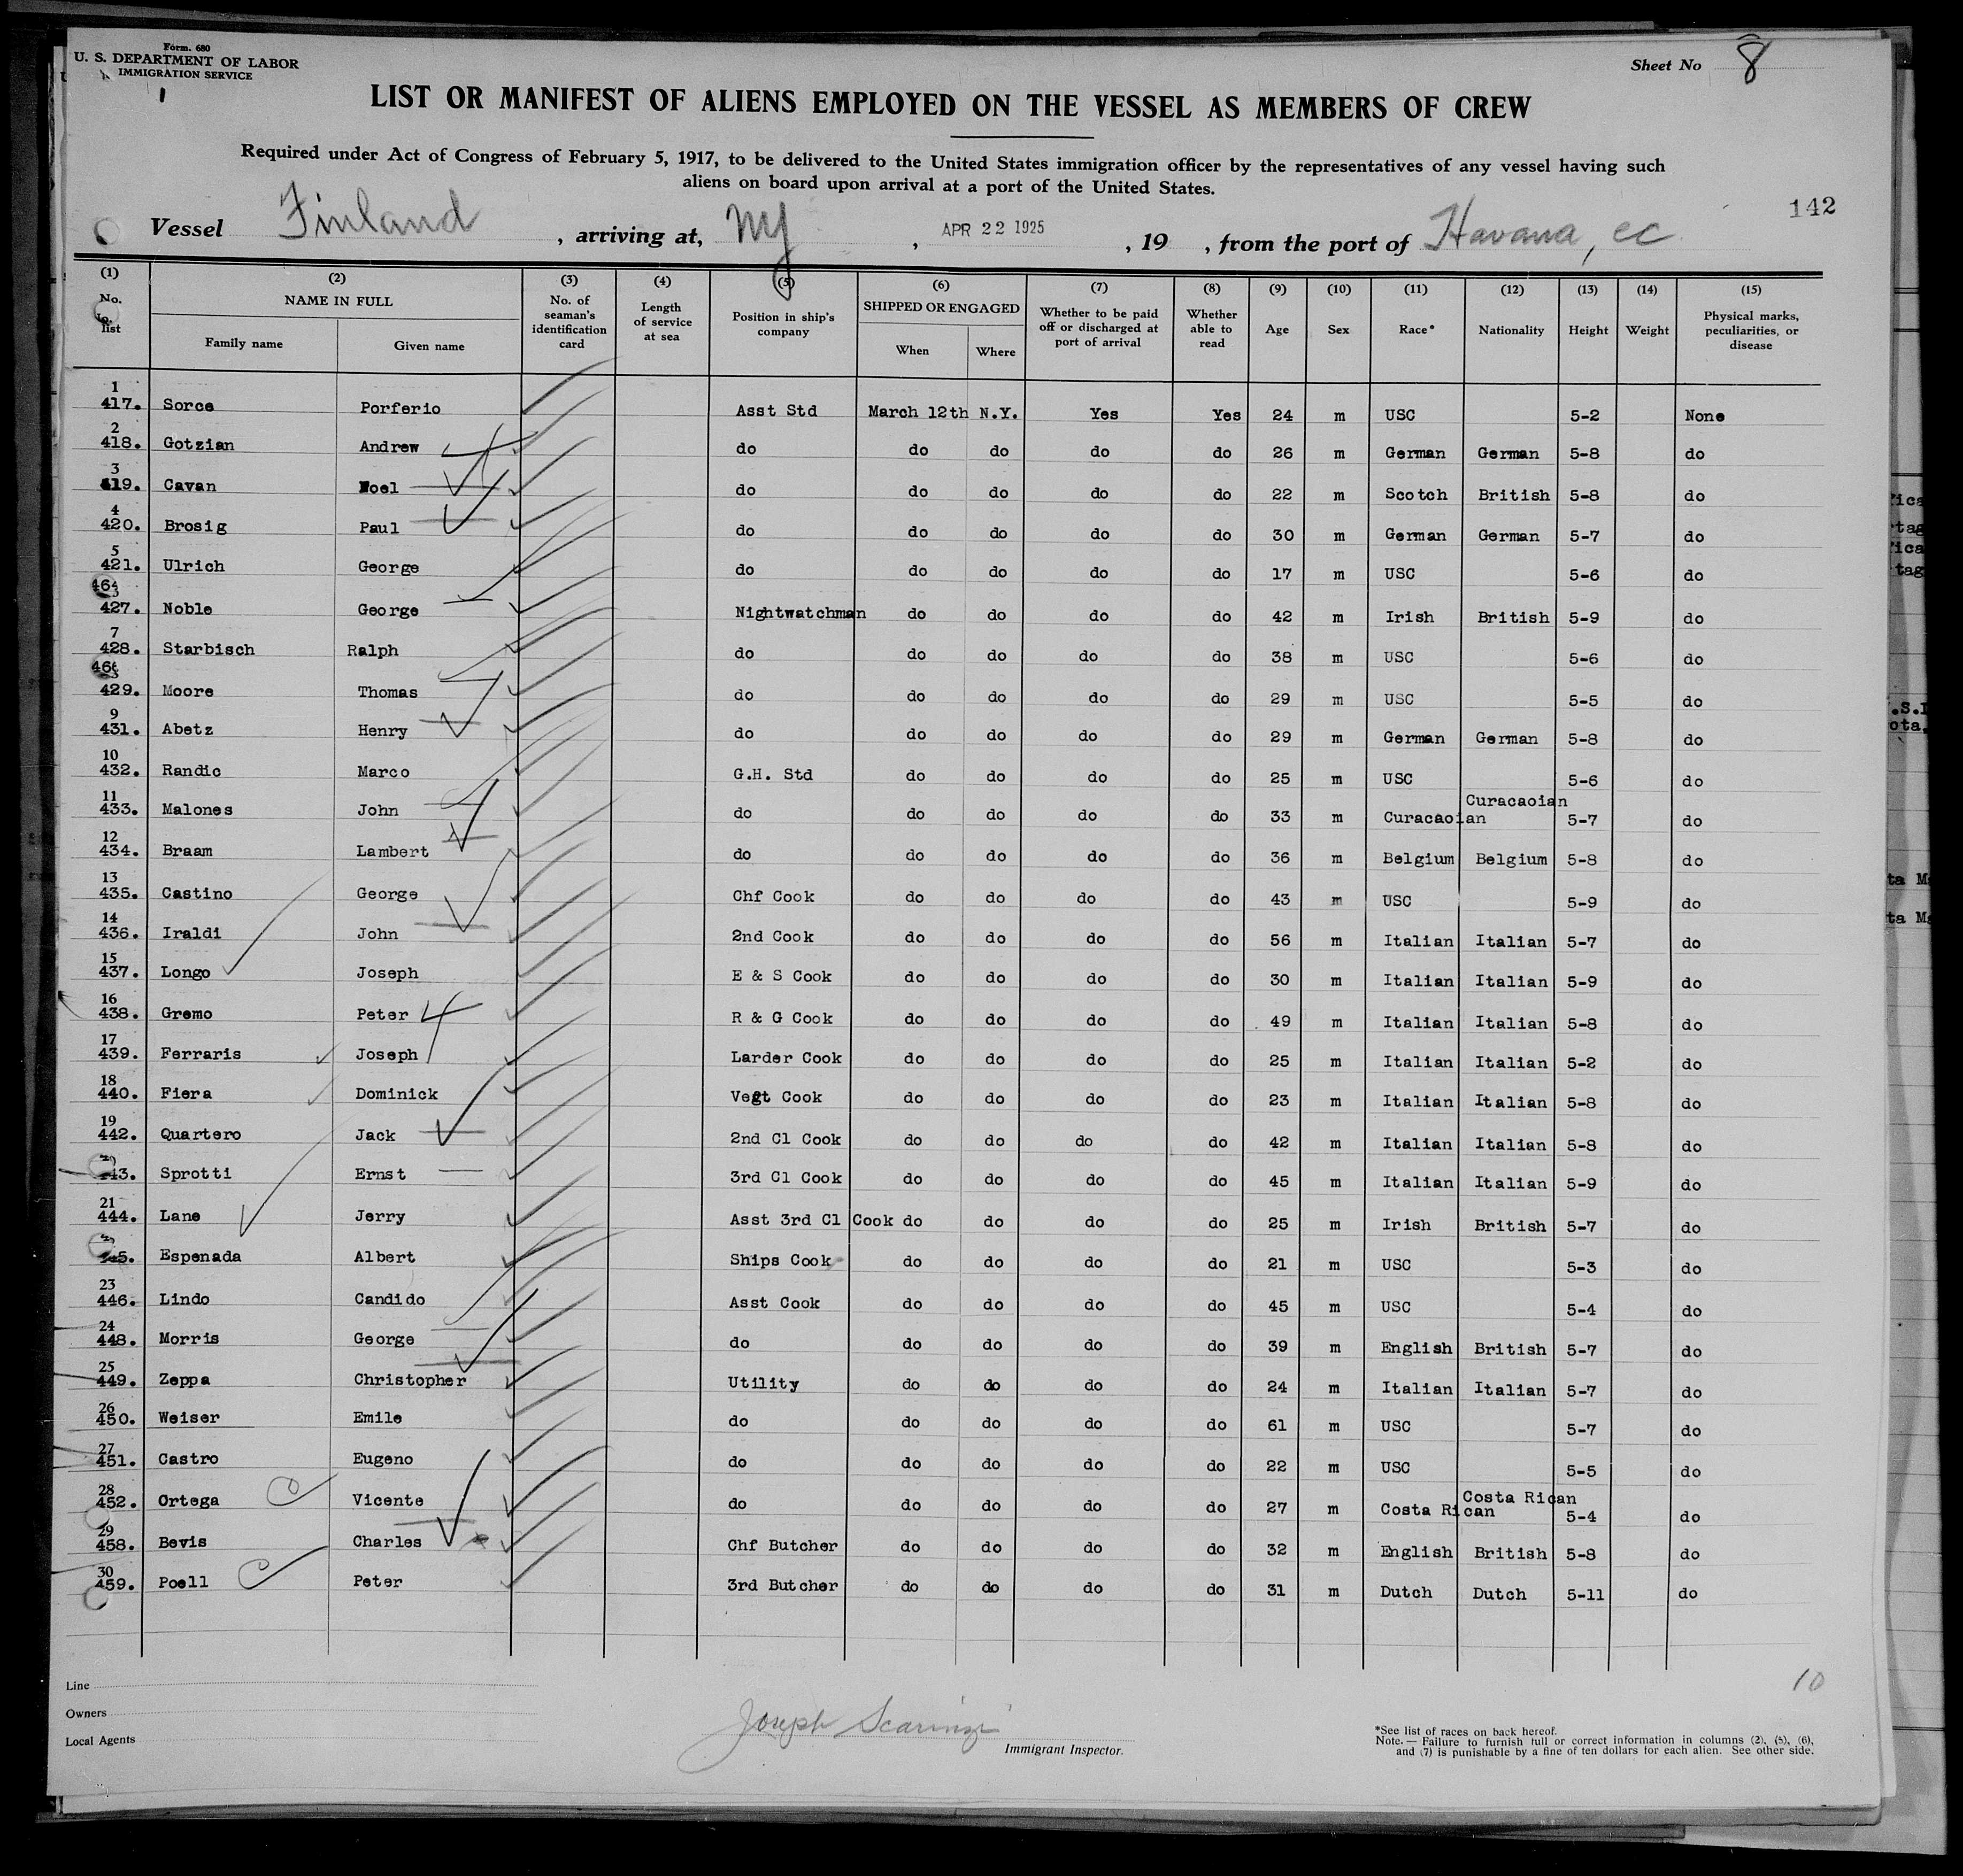 Form. 680
U. S. DEPARTMENT OF LABOR
IMMIGRATION SERVICE
Sheet No 8
LIST OR MANIFEST OF ALIENS EMPLOYED ON THE VESSEL AS MEMBERS OF CREW
Required under Act of Congress of February 5, 1917, to be delivered to the United States immigration officer by the representatives of any vessel having such
aliens on board upon arrival at a port of the United States.
142
Vessel Finland , arriving at, NY , APR 22 1925 , 19 , from the port of Havana, ec
(1) (2) (3) (4) (5) (6) (7) (8) (9) (10) (11) (12) (13) (14) (15)
No. list NAME IN FULL Family name Given name No. of seaman's identification card Length of service at sea Position in ship's company SHIPPED OR ENGAGED When Where Whether to be paid off or discharged at port of arrival Whether able to read Age Sex Race* Nationality Height Weight Physical marks, peculiarities, or disease
1 417. Sorce Porferio Asst Std March 12th N.Y. Yes Yes 24 m USC 5-2 None
2 418. Gotzian Andrew do do do do do 26 m German German 5-8 do
3 419. Cavan Noel do do do do do 22 m Scotch British 5-8 do
4 420. Brosig Paul do do do do do 30 m German German 5-7 do
5 421. Ulrich George do do do do do 17 m USC 5-6 do
427. Noble George Nightwatchman do do do do 42 m Irish British 5-9 do
7 428. Starbisch Ralph do do do do do 38 m USC 5-6 do
429. Moore Thomas do do do do do 29 m USC 5-5 do
9 431. Abetz Henry do do do do do 29 m German German 5-8 do
10 432. Randic Marco G.H. Std do do do do 25 m USC 5-6 do
11 433. Malones John do do do do do 33 m Curacaoian Curacaoian 5-7 do
12 434. Braam Lambert do do do do do 36 m Belgium Belgium 5-8 do
13 435. Castino George Chf Cook do do do do 43 m USC 5-9 do
14 436. Iraldi John 2nd Cook do do do do 56 m Italian Italian 5-7 do
15 437. Longo Joseph E & S Cook do do do do 30 m Italian Italian 5-9 do
16 438. Gremo Peter R & G Cook do do do do 49 m Italian Italian 5-8 do
17 439. Ferraris Joseph Larder Cook do do do do 25 m Italian Italian 5-2 do
18 440. Fiera Dominick Vegt Cook do do do do 23 m Italian Italian 5-8 do
19 442. Quartero Jack 2nd Cl Cook do do do do 42 m Italian Italian 5-8 do
43. Sprotti Ernst 3rd Cl Cook do do do do 45 m Italian Italian 5-9 do
21 444. Lane Jerry Asst 3rd Cl Cook do do do do 25 m Irish British 5-7 do
45. Espenada Albert Ships Cook do do do do 21 m USC 5-3 do
23 446. Lindo Candido Asst Cook do do do do 45 m USC 5-4 do
24 448. Morris George do do do do do 39 m English British 5-7 do
25 449. Zeppa Christopher Utility do do do do 24 m Italian Italian 5-7 do
26 450. Weiser Emile do do do do do 61 m USC 5-7 do
27 451. Castro Eugeno do do do do do 22 m USC 5-5 do
28 452. Ortega Vicente do do do do do 27 m Costa Rican Costa Rican 5-4 do
29 458. Bevis Charles Chf Butcher do do do do 32 m English British 5-8 do
30 459. Poell Peter 3rd Butcher do do do do 31 m Dutch Dutch 5-11 do
10
Line
Owners
Local Agents
Joseph Scarinzi
Immigrant Inspector.
*See list of races on back hereof.
Note.— Failure to furnish full or correct information in columns (2), (5), (6),
and (7) is punishable by a fine of ten dollars for each alien. See other side.